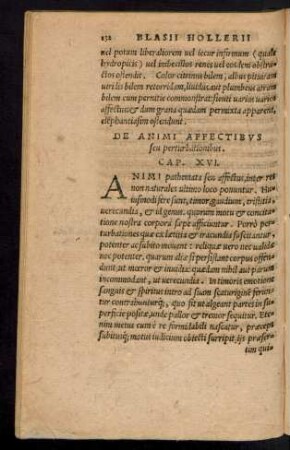 132 BLASII HOLLERII
vel potum liberaliorem vel iecur infirmum (quale
hydropicis) vel imbecillos renes vel eosdem obstru-
ctos ostendit. Color citrinus bilem, albus pituitam
viridis bilem retorridam, lividus aut plumbeus atram
bilem cum pernitie commonstrat sicuti varius varios
affectus: & dum grana quædam permixta apparent,
elephantiasem ostendunt.
DE ANIMI AFFECTIBVS
seu perturbationibus.
CAP. XVI.
ANIMI pathemata seu affectus, inter res
non naturales ultimo loco ponuntur. Hu-
iusmodi fere sunt, timor, gaudium, tristitia
verecundia, & id genus, quorum motu & concita-
tione nostra corpora sæpe afficiuntur. Porrò per-
turbationes quæ ex lætitia & iracundia fascitantur
potenter ac subitò movent: reliquæ vero nec valide
nec potenter, quarum diu si persistant corpus offen-
dunt, ut mœror & invidia: quædam nihil aut parum
incommodant, ut verecundia. In timoris emotione
sanguis & spiritus intro ad suam scaturiginem ferun-
tur contrahunturq́;, quo fit ut algeant partes in su-
perficie positæ, unde pallor & tremor sequitur. Et-
enim metus cum è re formidabili nascatur, præceps
subituq́; motus
tim qui-